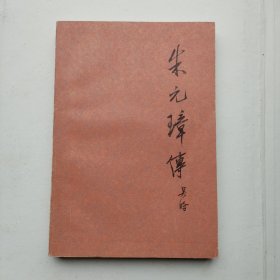 朱元璋傳
吴晗